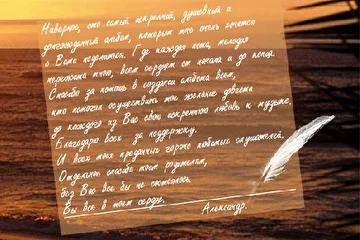 Наверное, это самый искренний, душевный и
долгожданный альбом, которым мне очень хочется
с Вами поделиться. Где каждая нота, мелодия
пережита мною, всем сердцем от начала и до конца.
Спасибо за помощь в создании альбома всем,
кто помогал осуществить мои желание донести
до каждого из Вас свою искреннюю любовь к музыке,
Благодарю всех за поддержку.
И всех моих преданных горячо любимых слушателей,
Отдельное спасибо моим родителям,
без Вас все бы не состоялось.
Вы все в моем сердце.
Александр.